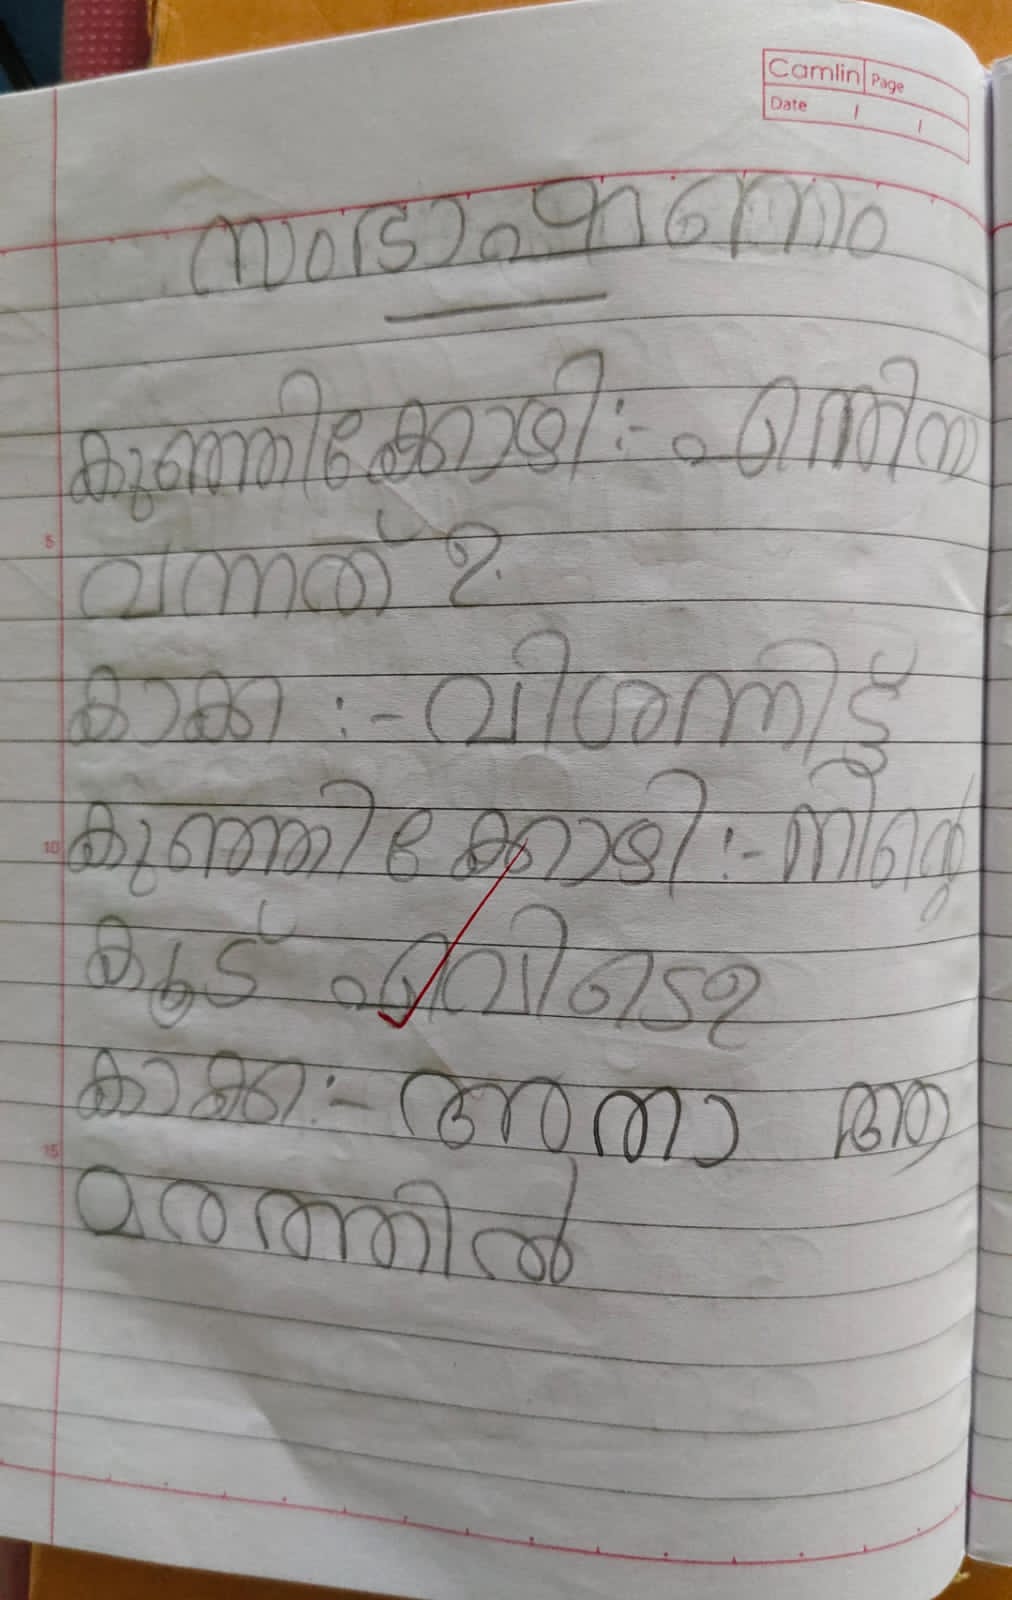 Camlin Page
Date / /
സംഭാഷണം
കുഞ്ഞികോഴി :- എന്തിന
വന്നത് ?
കാക്ക :- വിശന്നിട്ട്
കുഞ്ഞികോഴി :- നിന്റെ
കൂട് എവിടെ?
കാക്ക :- അതാ ആ
മരത്തിൽ
5
10
15